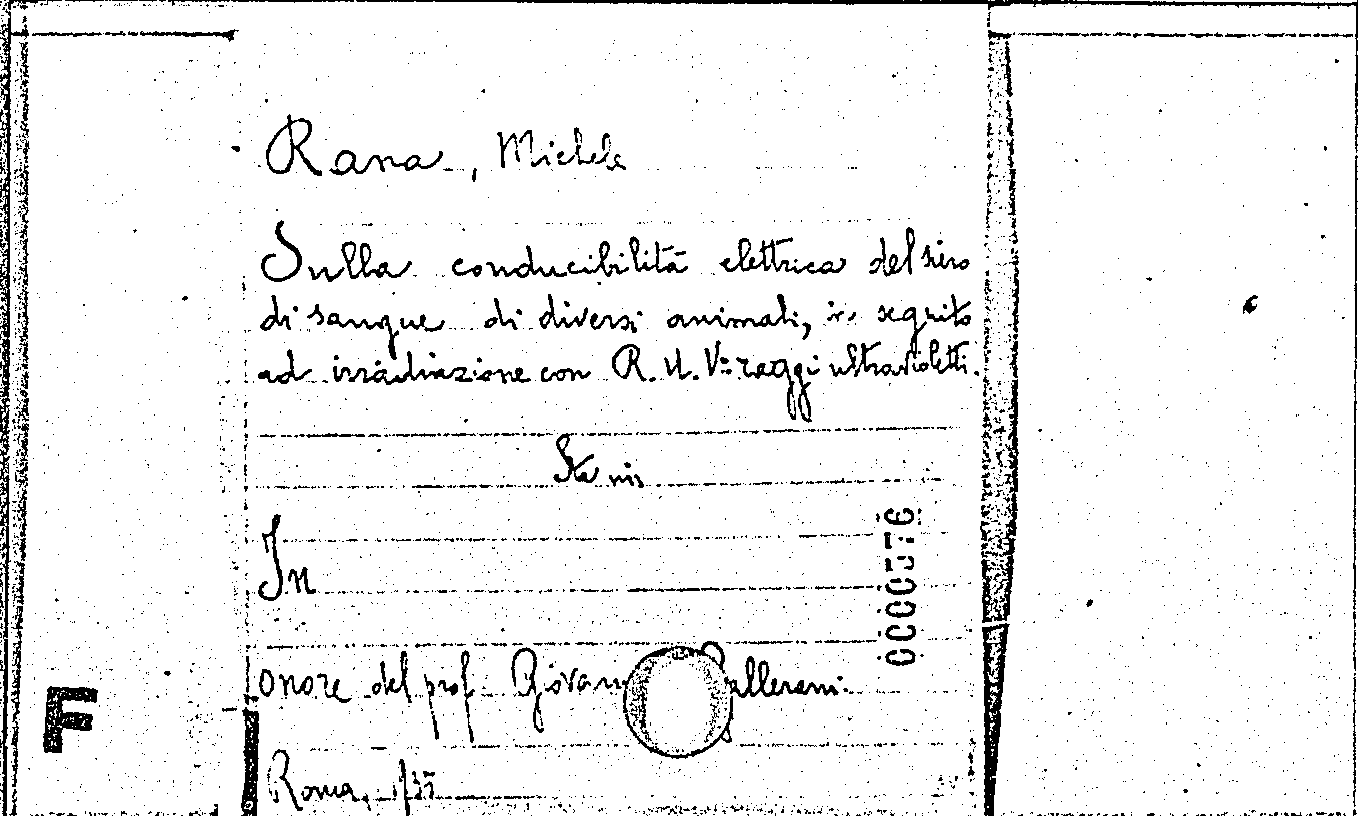 Rana, Michele
Sulla conducibilità elettrica del siero
di sangue di diversi animali, in seguito
ad irradiazione con R. U. V = raggi ultravioletti.
In
0000576
onore del prof. Giovan allerani.
F
Roma,